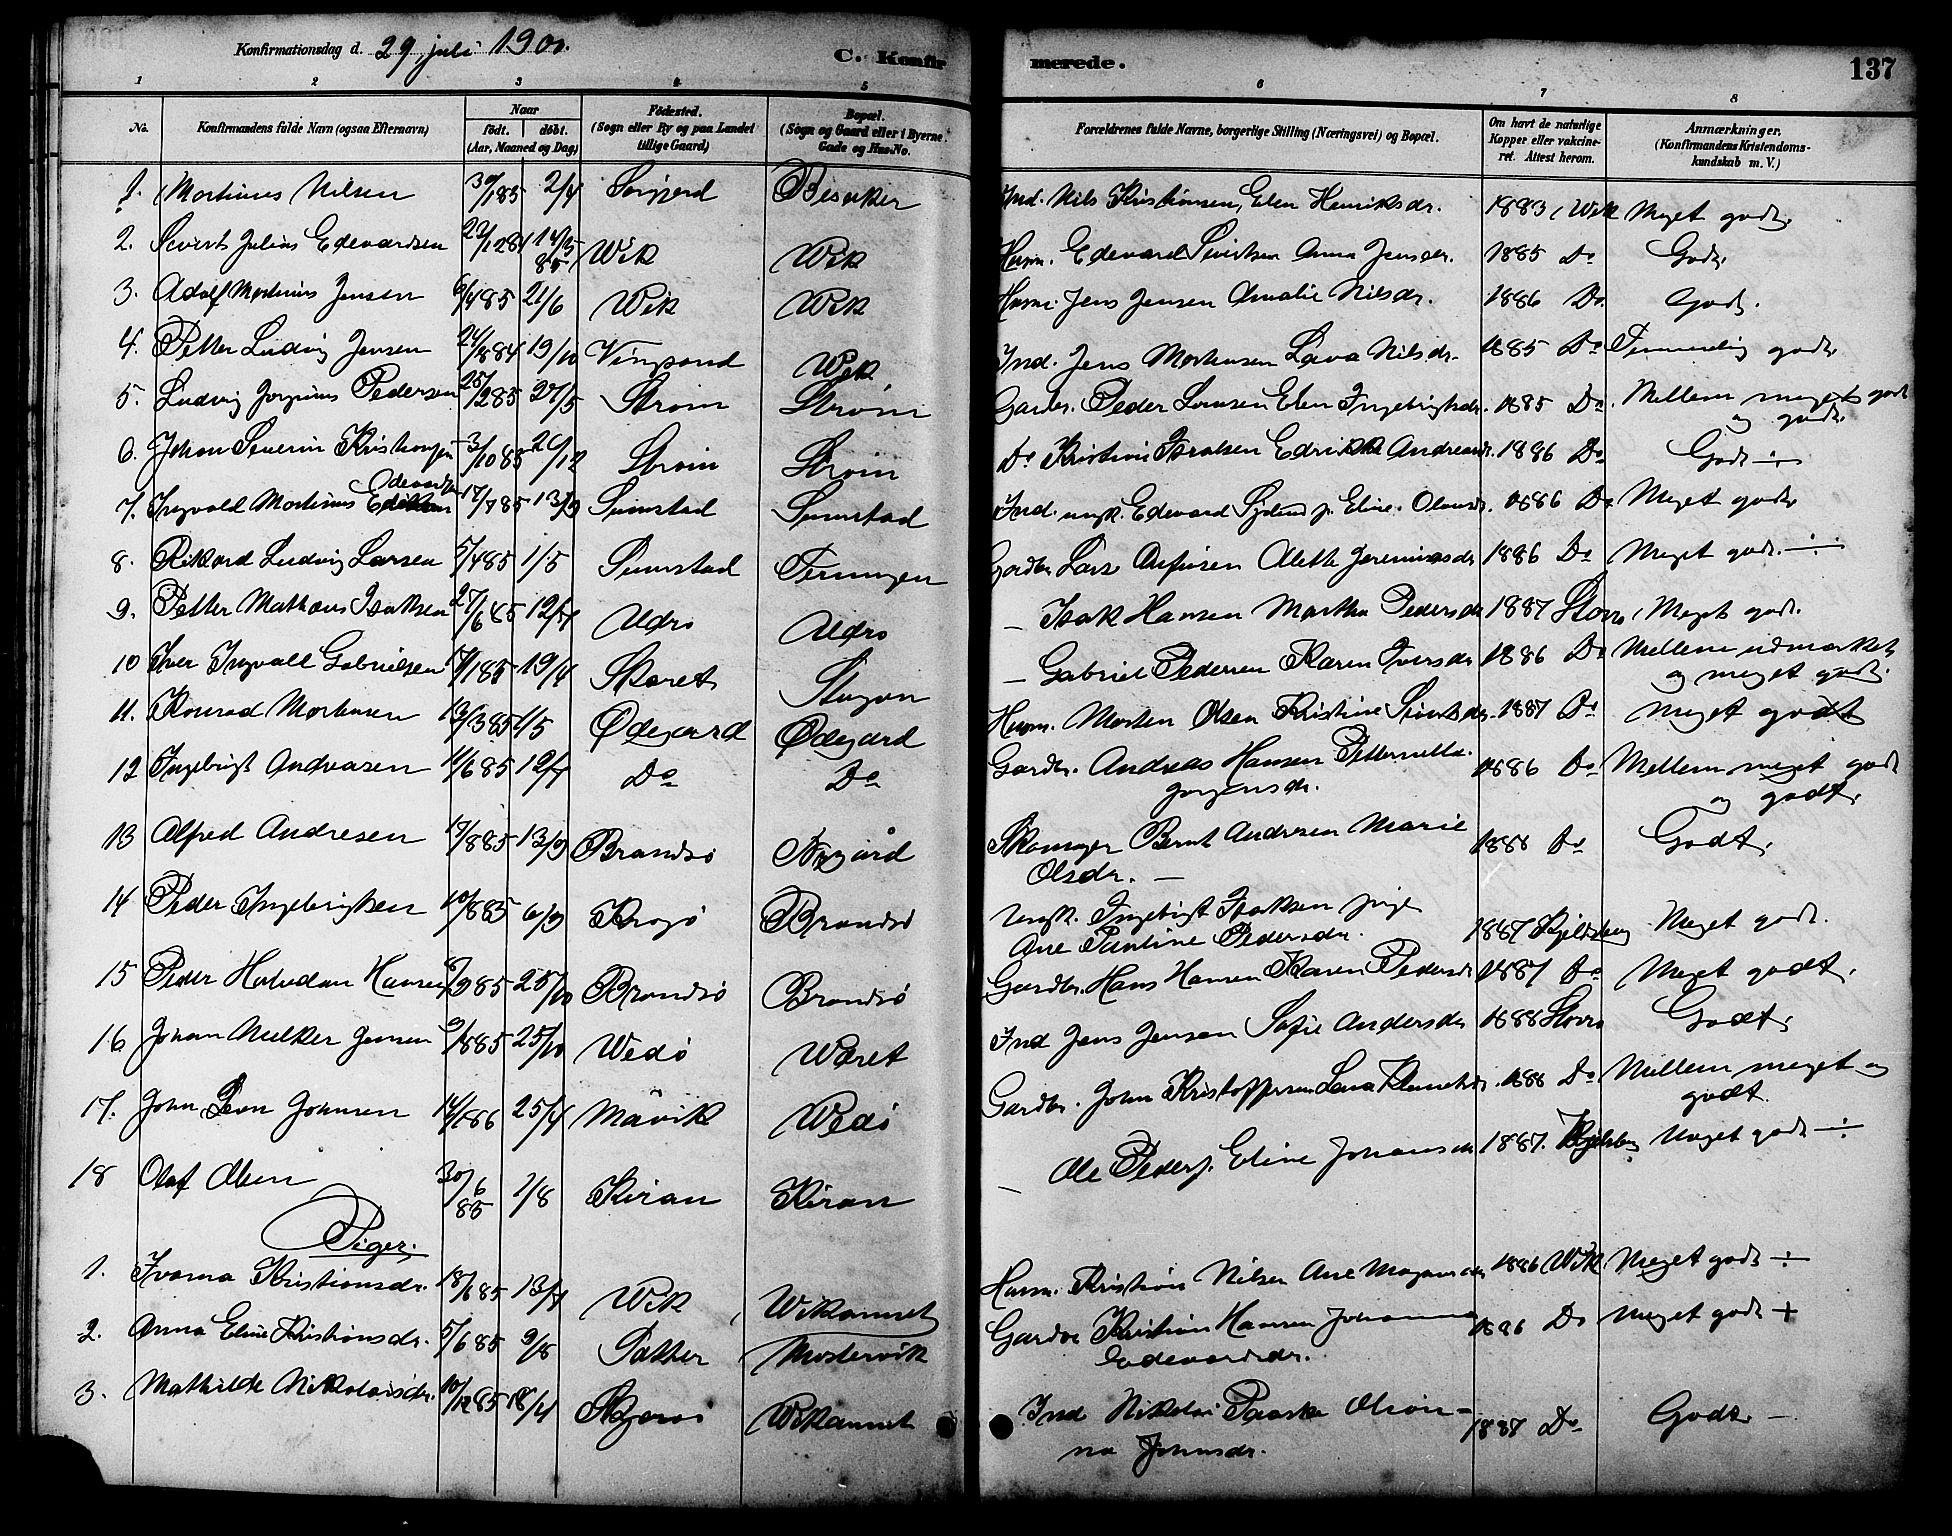 Konfirmationsdag d. 29 juli 190
C. Konfirmerede.
137
1 2 3 4 5 6 7 8
No. Konfirmandens fulde Navn (ogsaa Efternavn) Naar født. døbt. (Aar, Maaned og Dag) Fødested. (Sogn eller By og paa Landet tillige Gaard) Bopæl. (Sogn og Gaard eller i Byerne Gade og Hus-No. Forældrenes fulde Navne, borgerlige Stilling (Næringsvei) og Bopæl. Om havt de naturlige Kopper eller vakcineret. Attest herom. Anmærkninger. (Konfirmandens Kristendomskundskab m. V.)
1. Martinus Nilsen 30/1 85 2/4 Besaker Ind. Nils Kristiansen, Elen Henriksdr. 1883 Wik Meget godt.
2. Sivert Julius Edevardsen 22/12 84 14/5 85 Wik Wik Husm. Edevard Sivertsen Anna Jensdr. 1885 Do Godt.
3. Adolf Martinus Jensen 6/4 85 21/6 Wik Wik Husm. Jens Jensen Amalie Nilsdr. 1886 Do. Godt.
4. Petter Ludvig Jensen 24/8 84 19/10 Vingsand Wik Ind. Jens Mortensen Lava Nilsdr. 1885 Do Temmelig godt
5. Ludvig Jørginus Pedersen 25/2 85 27/5 Strøm Strøm Gardbr. Peder Elen Ingebrigtsdr. 1885 Do. Mellem meget godt og godt.
6. Johan Severin Kristiansen 3/10 85 26/12 Strøm Strøm Do Kristian Edrikke Andreasdr. 1886 Do. Godt ÷
7. Ingvald Martinus Edevardsen 17/7 85 13/9 Sumstad Sumstad Ind. ungk. Edevard p. Eline Olausdr. 1886 Do Meget godt
8. Rikard Ludvig Larsen 5/4 85 1/5 Sumstad Terningen Gardbr. Lars Arfinsen Alette Jeremiasdr 1886 Do Meget godt. ÷
9. Petter Mathæus Isaksen 27/6 85 12/7 Aldrs Aldrs — Isak Hansen Martha Pedersdr 1887 Storø Meget godt.
10 Iver Ingvald Gabrielsen 7/1 85 19/4 Skaret — Gabriel Pedersen Karen Iversdr 1886 Do Mellem udmærket og meget godt.
11. Konrad Mortensen 13/3 85 1/5 Ødegaard Ødegård Husm. Morten Olsen Kristine Sivertsdr. 1887 Do Meget godt
12 Ingebrigt Andreasen 11/6 85 12/7 Do Do Gardbr. Andreas Hansen Petternelle Jørgensdr. 1886 Do Mellem meget godt og godt.
13 Alfred Andresen 17/8 85 13/9 Brandsø Nygård Skomager Bernt Andresen Marie Olsdr. — 1888 Do Godt.
14 Peder Ingebrigtsen 10/8 85 6/9 Krogø Brandsø Ungk. Ingebrigt Isaksen pige Ane Pauline Pedersdr. 1887 Meget godt.
15 Peder Halvdan Hansen /9 85 25/10 Brandsø Brandsø Gardbr. Hans Hansen Karen Pedersdr 1887 Do Meget godt.
16 Johan Melker Jensen 9/8 85 25/10 Wedø Wæret Ind Jens Jensen Sofie Andersdr 1888 Storø Godt.
17. John Leon Johnsen 14/1 86 25/4 Måvik Wedø Gardbr. John Kristoffersen Lena 1888 Do Mellem meget og godt.
18 Olaf Olsen 30/6 85 2/8 Kiran Kiran — Ole Peders. Eline Johansdr 1887. Meget godt ÷
Piger.
1. Ivarna Kristiansdr. 18/6 85 13/7 Wik Wikamnet Husm. Kristian Nilsen Ane 1886 Wik Meget godt ÷
2. Anna Eline Kristiansdr. 5/6 85 9/8 Mostervik Gardbr Kristian Hansen Johanna Edevardsdr. 1886 Do Meget godt +
3. Mathilde Nikolaisdr. 10/12 85 18/4 Wikamnet Ind Nikolai Olsen — Johnsdr. 1887 Do Godt —